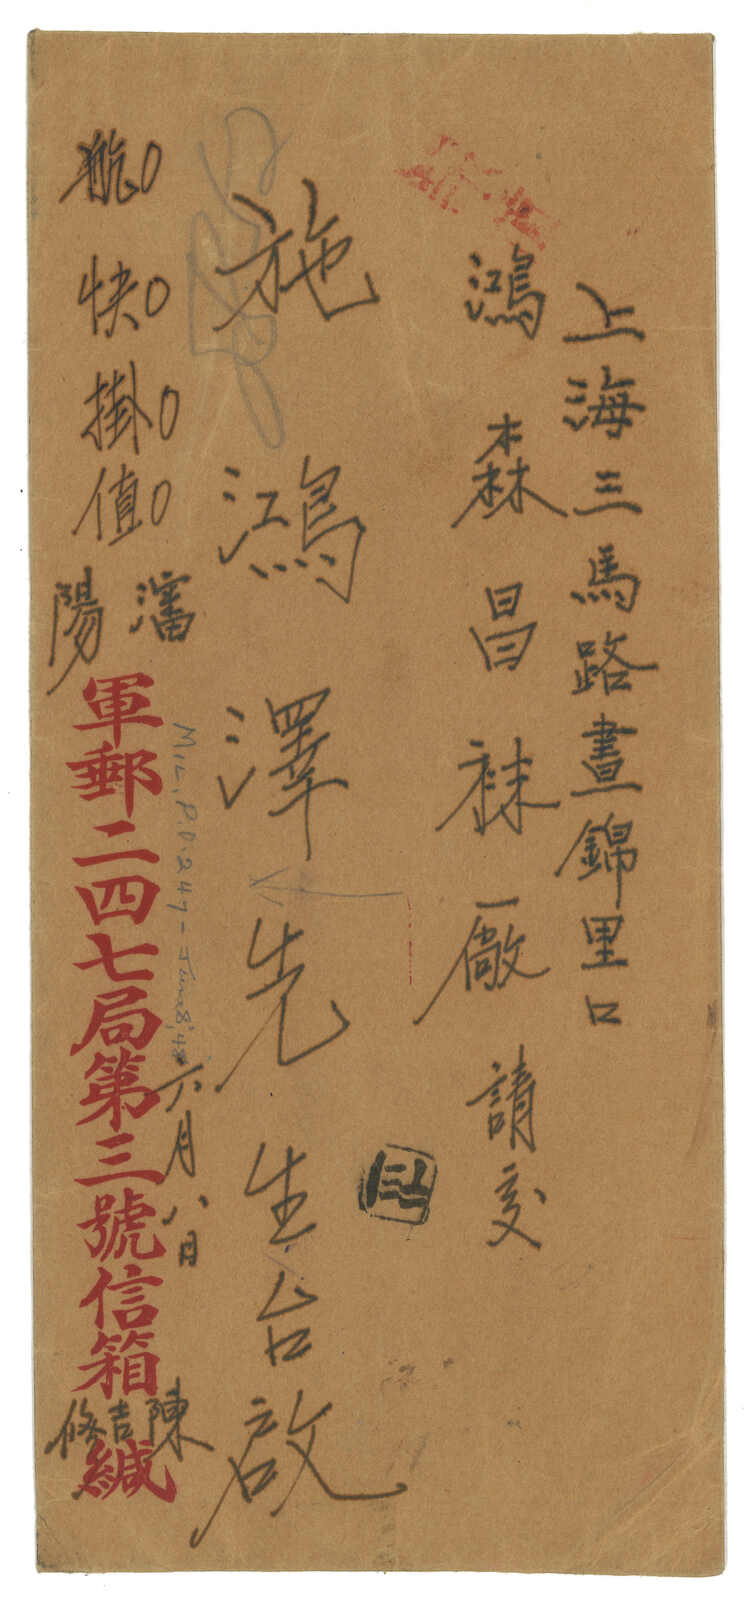 上海三馬路晝錦里口
鴻森昌袜廠請交
施鴻澤先生台啟
航0
快0
掛0
值0
瀋陽
軍郵二四七局第三號信箱 緘
陳吉修
六月八日
MIL.P.O.247-June8,'48